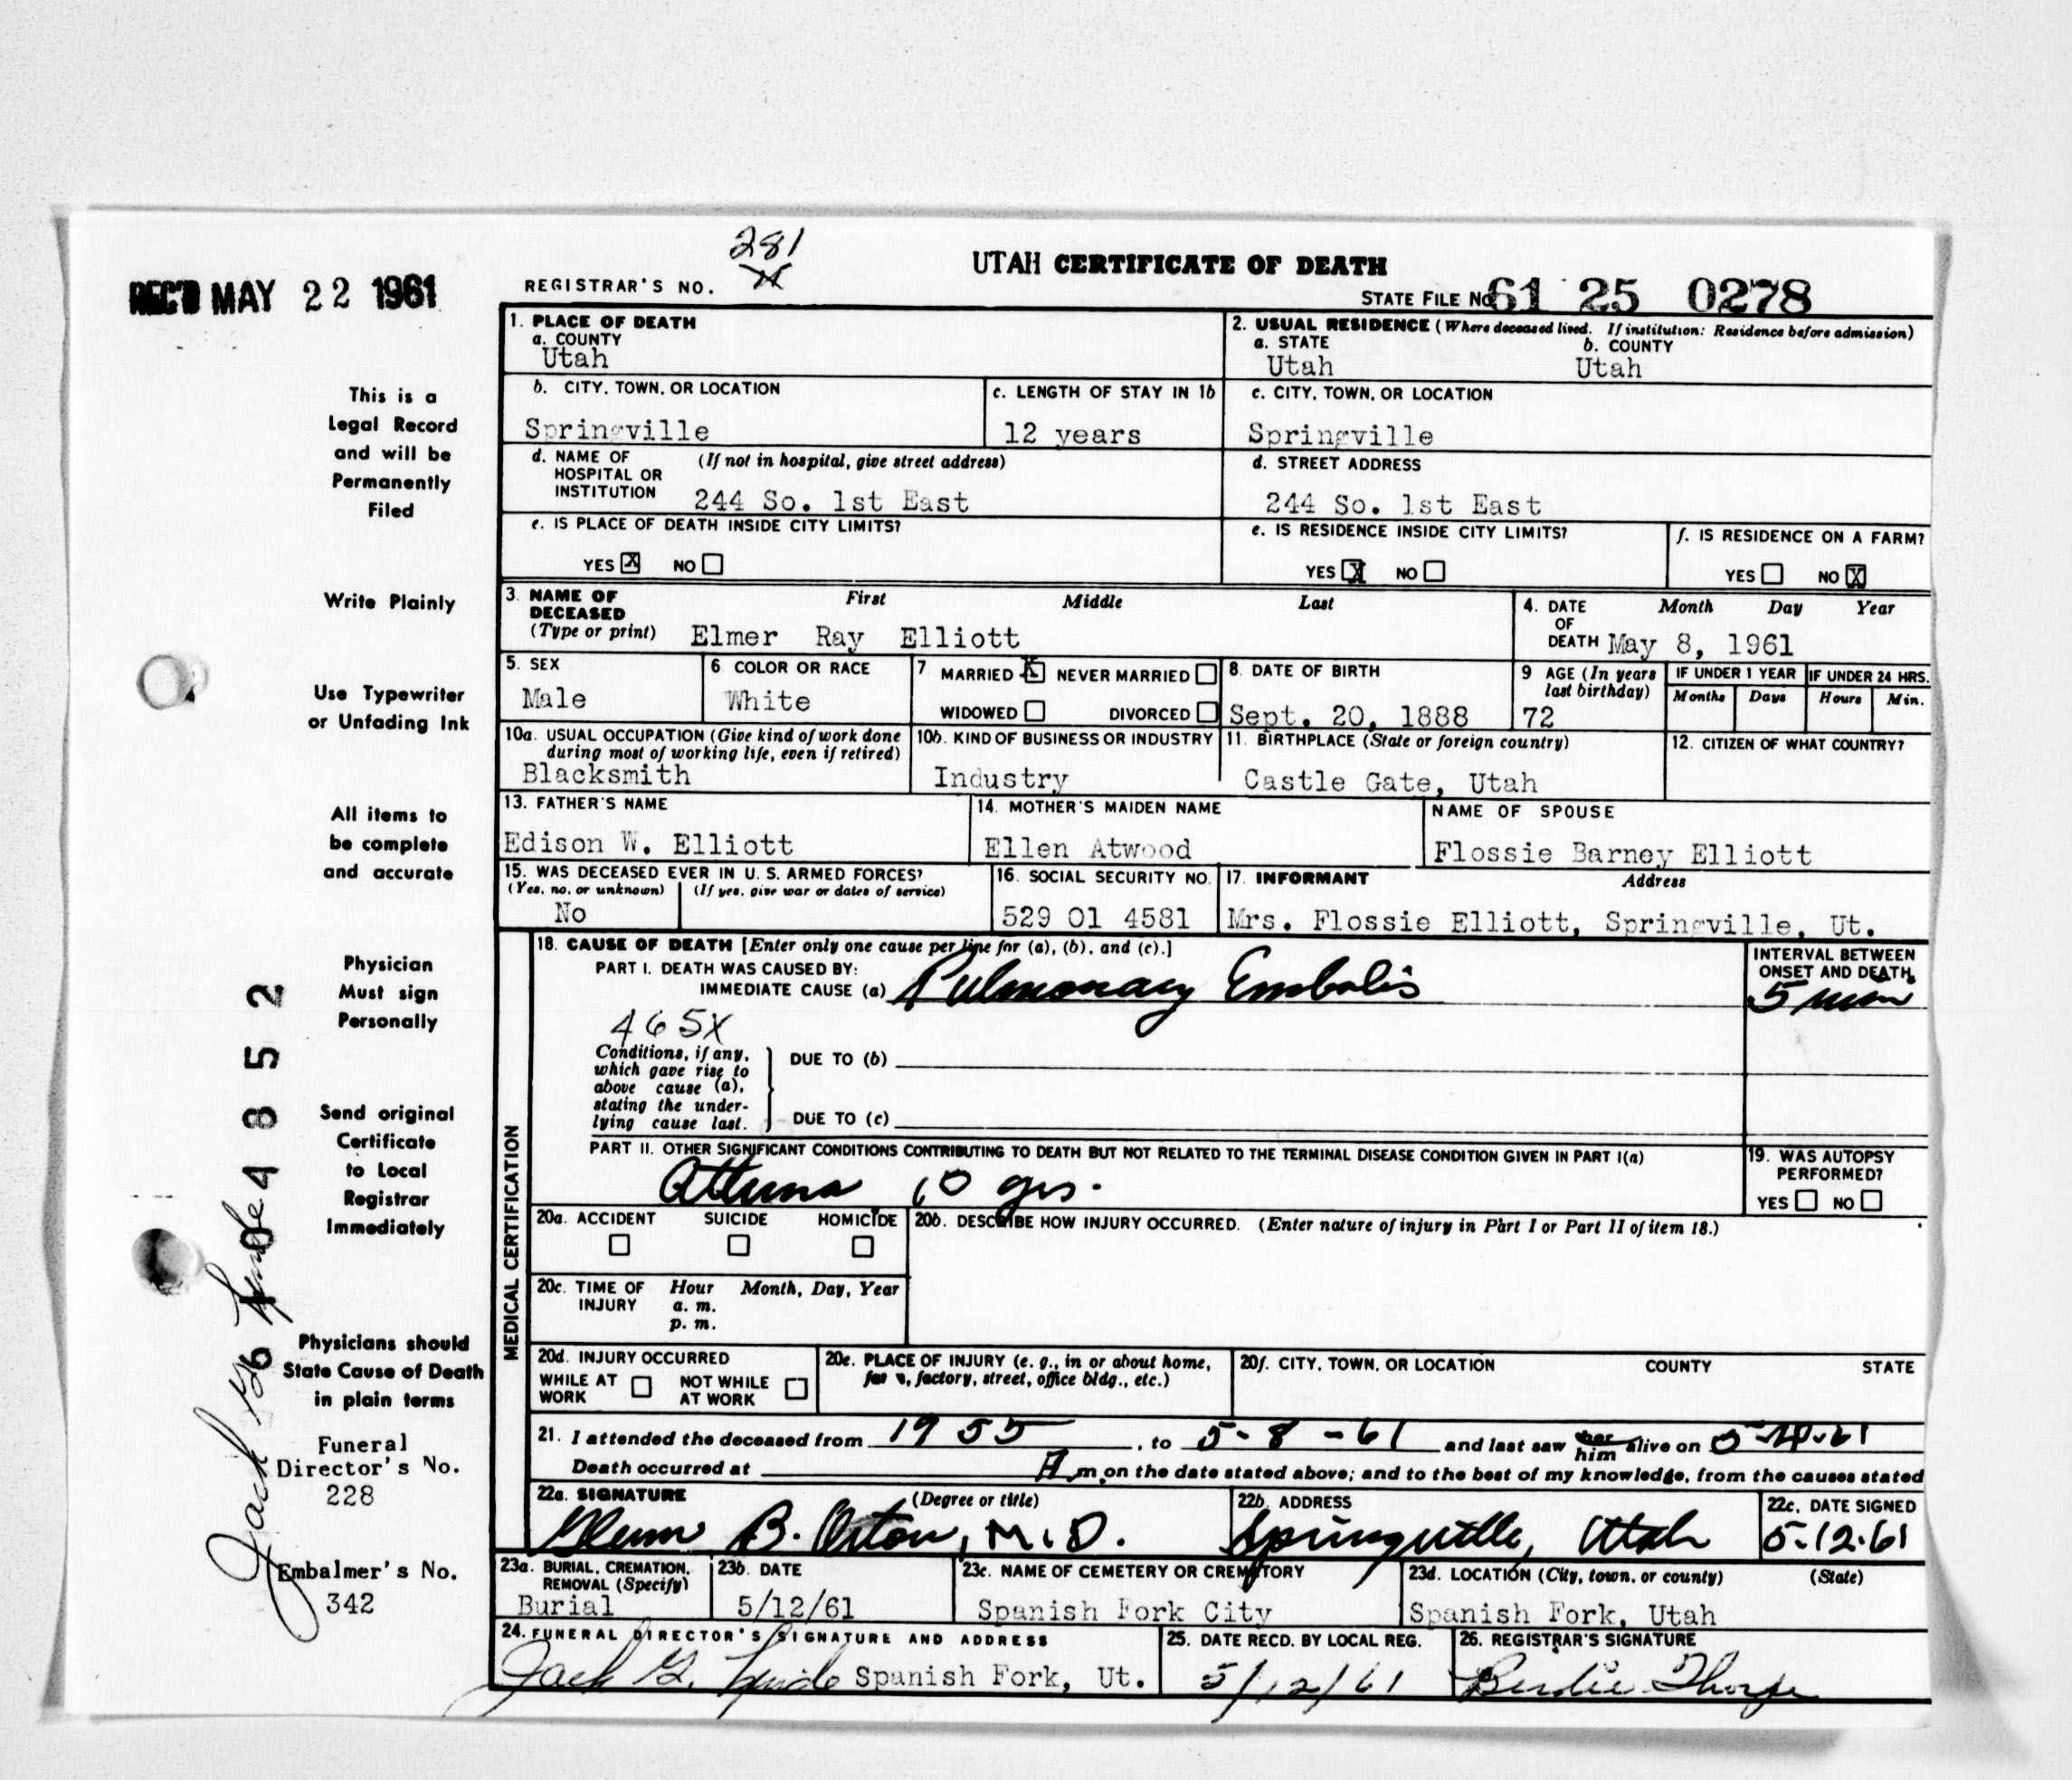 281
UTAH CERTIFICATE OF DEATH
REC'D MAY 22 1961
REGISTRAR'S NO.
STATE FILE NO. 61 25 0278
1. PLACE OF DEATH
a. COUNTY
Utah
2. USUAL RESIDENCE (Where deceased lived. If institution: Residence before admission)
a. STATE b. COUNTY
Utah Utah
b. CITY, TOWN, OR LOCATION
Springville
c. LENGTH OF STAY IN 1b
12 years
c. CITY, TOWN, OR LOCATION
Springville
d. NAME OF HOSPITAL OR INSTITUTION (If not in hospital, give street address)
244 So. 1st East
d. STREET ADDRESS
244 So. 1st East
e. IS PLACE OF DEATH INSIDE CITY LIMITS?
YES X NO
e. IS RESIDENCE INSIDE CITY LIMITS?
YES X NO
f. IS RESIDENCE ON A FARM?
YES NO X
3. NAME OF DECEASED (Type or print) First Middle Last
Elmer Ray Elliott
4. DATE OF DEATH Month Day Year
May 8, 1961
5. SEX
Male
6 COLOR OR RACE
White
7 MARRIED X NEVER MARRIED
WIDOWED DIVORCED
8. DATE OF BIRTH
Sept. 20, 1888
9 AGE (In years last birthday)
72
IF UNDER 1 YEAR
Months Days
IF UNDER 24 HRS.
Hours Min.
10a. USUAL OCCUPATION (Give kind of work done during most of working life, even if retired)
Blacksmith
10b. KIND OF BUSINESS OR INDUSTRY
Industry
11. BIRTHPLACE (State or foreign country)
Castle Gate, Utah
12. CITIZEN OF WHAT COUNTRY?
13. FATHER'S NAME
Edison W. Elliott
14. MOTHER'S MAIDEN NAME
Ellen Atwood
NAME OF SPOUSE
Flossie Barney Elliott
15. WAS DECEASED EVER IN U. S. ARMED FORCES?
(Yes, no, or unknown) (If yes, give war or dates of service)
No
16. SOCIAL SECURITY NO.
529 01 4581
17. INFORMANT Address
Mrs. Flossie Elliott, Springville, Ut.
MEDICAL CERTIFICATION
18. CAUSE OF DEATH [Enter only one cause per line for (a), (b), and (c).]
PART I. DEATH WAS CAUSED BY:
IMMEDIATE CAUSE (a) Pulmonary Embolis
INTERVAL BETWEEN ONSET AND DEATH
5 min
465X
Conditions, if any, which gave rise to above cause (a), stating the underlying cause last.
DUE TO (b)
DUE TO (c)
PART II. OTHER SIGNIFICANT CONDITIONS CONTRIBUTING TO DEATH BUT NOT RELATED TO THE TERMINAL DISEASE CONDITION GIVEN IN PART I(a)
10 yrs.
19. WAS AUTOPSY PERFORMED?
YES NO
20a. ACCIDENT SUICIDE HOMICIDE
20b. DESCRIBE HOW INJURY OCCURRED. (Enter nature of injury in Part I or Part II of item 18.)
20c. TIME OF INJURY Hour Month, Day, Year
a. m.
p. m.
20d. INJURY OCCURRED
WHILE AT WORK NOT WHILE AT WORK
20e. PLACE OF INJURY (e. g., in or about home, farm, factory, street, office bldg., etc.)
20f. CITY, TOWN, OR LOCATION COUNTY STATE
21. I attended the deceased from 1955, to 5-8-61 and last saw her him alive on
Death occurred at A m, on the date stated above; and to the best of my knowledge, from the causes stated
22a. SIGNATURE (Degree or title)
Glenn B. Orton, M.D.
22b. ADDRESS
Springville, Utah
22c. DATE SIGNED
5-12-61
23a. BURIAL, CREMATION, REMOVAL (Specify)
Burial
23b. DATE
5/12/61
23c. NAME OF CEMETERY OR CREMATORY
Spanish Fork City
23d. LOCATION (City, town, or county) (State)
Spanish Fork, Utah
24. FUNERAL DIRECTOR'S SIGNATURE AND ADDRESS
Jack G. Spanish Fork, Ut.
25. DATE RECD. BY LOCAL REG.
5/12/61
26. REGISTRAR'S SIGNATURE
Birdie Thorpe
This is a
Legal Record
and will be
Permanently
Filed
Write Plainly
Use Typewriter
or Unfading Ink
All items to
be complete
and accurate
Physician
Must sign
Personally
Send original
Certificate
to Local
Registrar
Immediately
Physicians should
State Cause of Death
in plain terms
Funeral
Director's No.
228
Embalmer's No.
342
Jack G.
4852